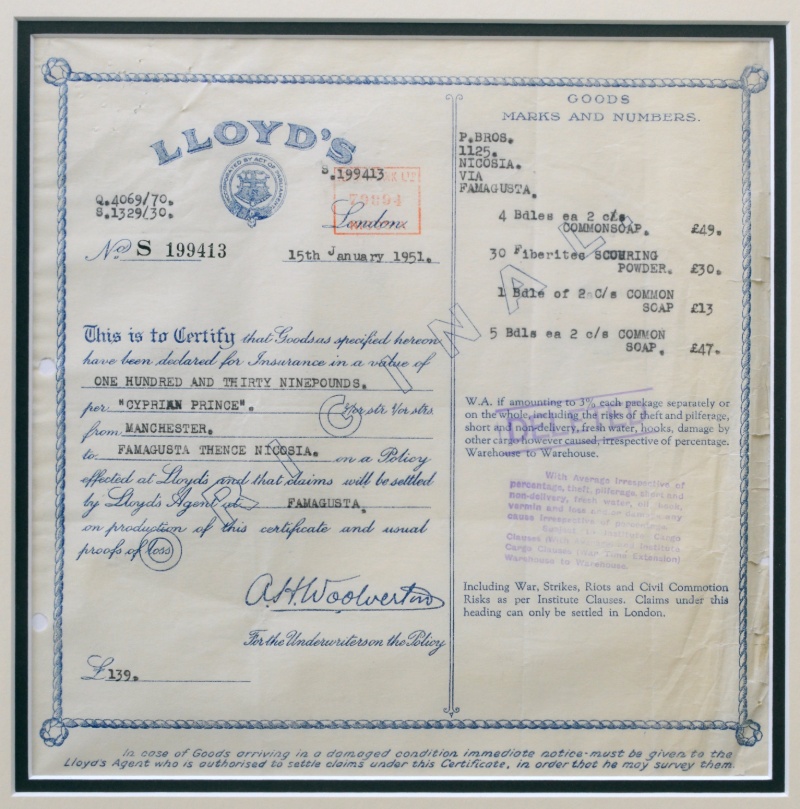 LLOYD'S
INCORPORATED BY ACT OF PARLIAMENT
S.199413
Q.4069/70.
S.1329/30.
79894
London.
No. S 199413
15th January 1951.
This is to Certify that Goods as specified hereon
have been declared for Insurance in a value of
ONE HUNDRED AND THIRTY NINEPOUNDS.
per "CYPRIAN PRINCE". &/or str &/or strs
from MANCHESTER.
to FAMAGUSTA THENCE NICOSIA. on a Policy
effected at Lloyd's and that claims will be settled
by Lloyd's Agent at FAMAGUSTA.
on production of this certificate and usual
proofs of loss
A.H.Woolverton
For the Underwriters on the Policy
£139.
ORIGINAL
GOODS
MARKS AND NUMBERS.
P.BROS.
1125.
NICOSIA.
VIA
FAMAGUSTA.
4 Bdles ea 2 c/s
COMMONSOAP. £49.
30 Fiberites SCOURING
POWDER. £30.
1 Bdle of 2 C/s COMMON
SOAP £13
5 Bdls ea 2 c/s COMMON
SOAP. £47.
W.A. if amounting to 3% each package separately or
on the whole, including the risks of theft and pilferage,
short and non-delivery, fresh water, hooks, damage by
other cargo however caused, irrespective of percentage.
Warehouse to Warehouse.
With Average irrespective of
percentage, theft, pilferage, short and
non-delivery, fresh water, oil, hook,
vermin and loss and/or damage any
cause irrespective of percentage.
Subject to Institute Cargo
Clauses Institute
Cargo Clauses (War Time Extension)
Warehouse to Warehouse.
Including War, Strikes, Riots and Civil Commotion
Risks as per Institute Clauses. Claims under this
heading can only be settled in London.
In case of Goods arriving in a damaged condition immediate notice must be given to the
Lloyd's Agent who is authorised to settle claims under this Certificate, in order that he may survey them.